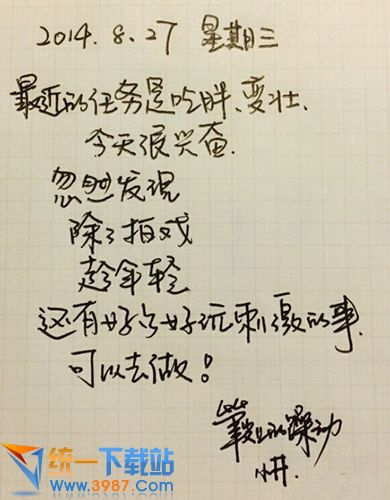 2014.8.27 星期三
最近的任务是吃胖、变壮.
今天很兴奋.
忽然发现
除了拍戏
趁年轻
还有好多好玩刺激的事.
可以去做!
的躁动
统一下载站
www.3987.com